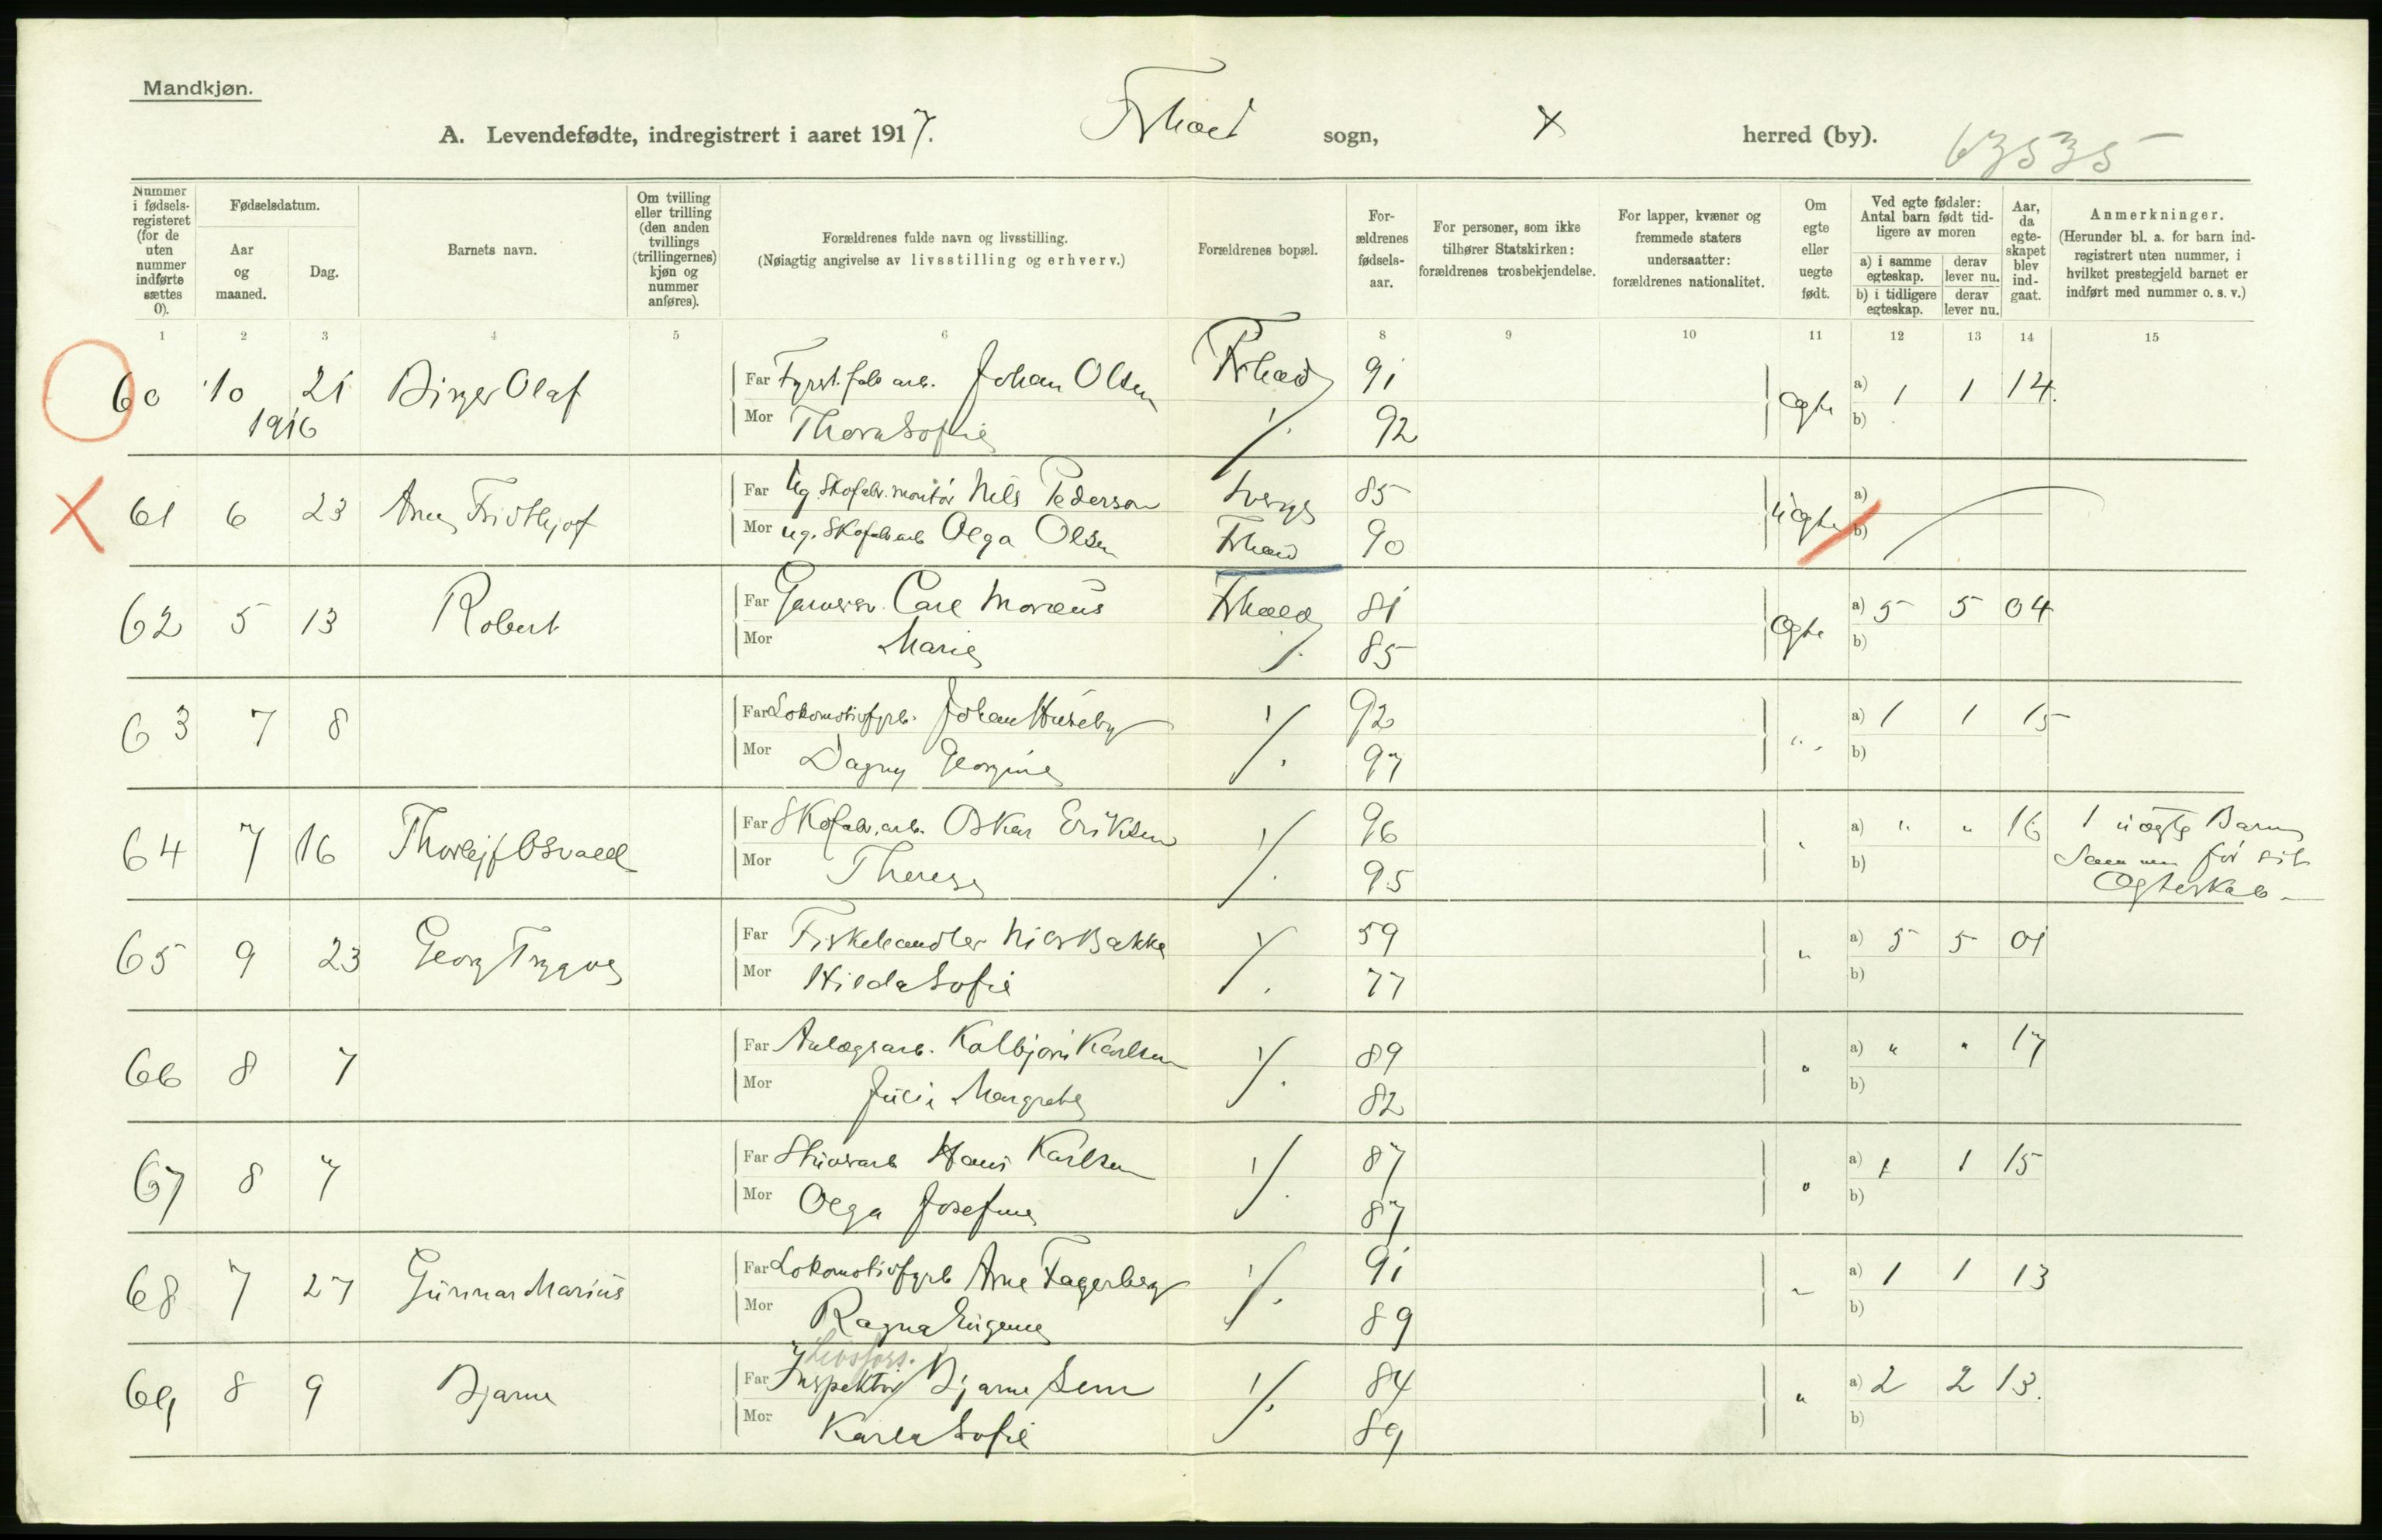 Mandkjøn.
A. Levendefødte, indregistrert i aaret 1917. Frhald sogn, herred (by).
63535
Nummer i fødsels-registeret (for de uten nummer indførte sættes 0).
Fødselsdatum.
Aar og maaned.
Dag.
Barnets navn.
Om tvilling eller trilling (den anden tvillings (trillingernes) kjøn og nummer anføres).
Forældrenes fulde navn og livsstilling.
(Nøiagtig angivelse av livsstilling og erhverv.)
Forældrenes bopæl.
For-ældrenes fødsels-aar.
For personer, som ikke tilhører Statskirken: forældrenes trosbekjendelse.
For lapper, kvæner og fremmede staters undersaatter: forældrenes nationalitet.
Om egte eller uegte født.
Ved egte fødsler: Antal barn født tid-ligere av moren
a) i samme egteskap. derav lever nu.
b) i tidligere egteskap. derav lever nu.
Aar, da egte-skapet blev ind-gaat.
Anmerkninger.
(Herunder bl. a. for barn ind-registrert uten nummer, i hvilket prestegjeld barnet er indført med nummer o. s. v.)
1 2 3 4 5 6 8 9 10 11 12 13 14 15
60 10 21 Birger Olaf Far Fyrst. fab arb. Johan Olsen Frhald 91 Egte a) 1 1 14.
1916 Mor Thora Sofie ./. 92 b)
61 6 23 Arne Fridthjof Far Ug. Skofabr. montör Nils Pederson Sverge 85 Uegte a)
Mor ug. Skofabarb Olga Olsen Frhald 90 b)
62 5 13 Robert Far Carl Moræus Frhald 81 Egte a) 5 5 04
Mor Marie ./. 85 b)
63 7 8 Far Lokomotivfyrb. Johan Huseby ./. 92 " a) 1 1 15
Mor Dagny Georgine 97 b)
64 7 16 Thorleif Osvald Far Skofabr. arb. Oskar Eriksen ./. 96 " a) " " 16 1 uægte Barn
Mor Therese 95 b) Sammen før sit
Egteskab
65 9 23 Georg Trygve Far Fiskehandler Nils Bakke ./. 59 " a) 5 5 01
Mor Hilda Sofie 77 b)
66 8 7 Far Anlægsarb. Kolbjørn Karlsen ./. 89 " a) " " 17
Mor Julie Margrethe 82 b)
67 8 7 Far Hans Karlsen ./. 87 " a) 1 1 15
Mor Olga Josefine 87 b)
68 7 27 Gunnar Marius Far Lokomotivfyrb Arne Fagerberg ./. 91 " a) 1 1 13
Mor Ragna Eugenie 89 b)
Livsfors.
69 8 9 Bjarne Far Inspektør Bjarne Sem ./. 84 " a) 2 2 13.
Mor Karla Sofie 89 b)